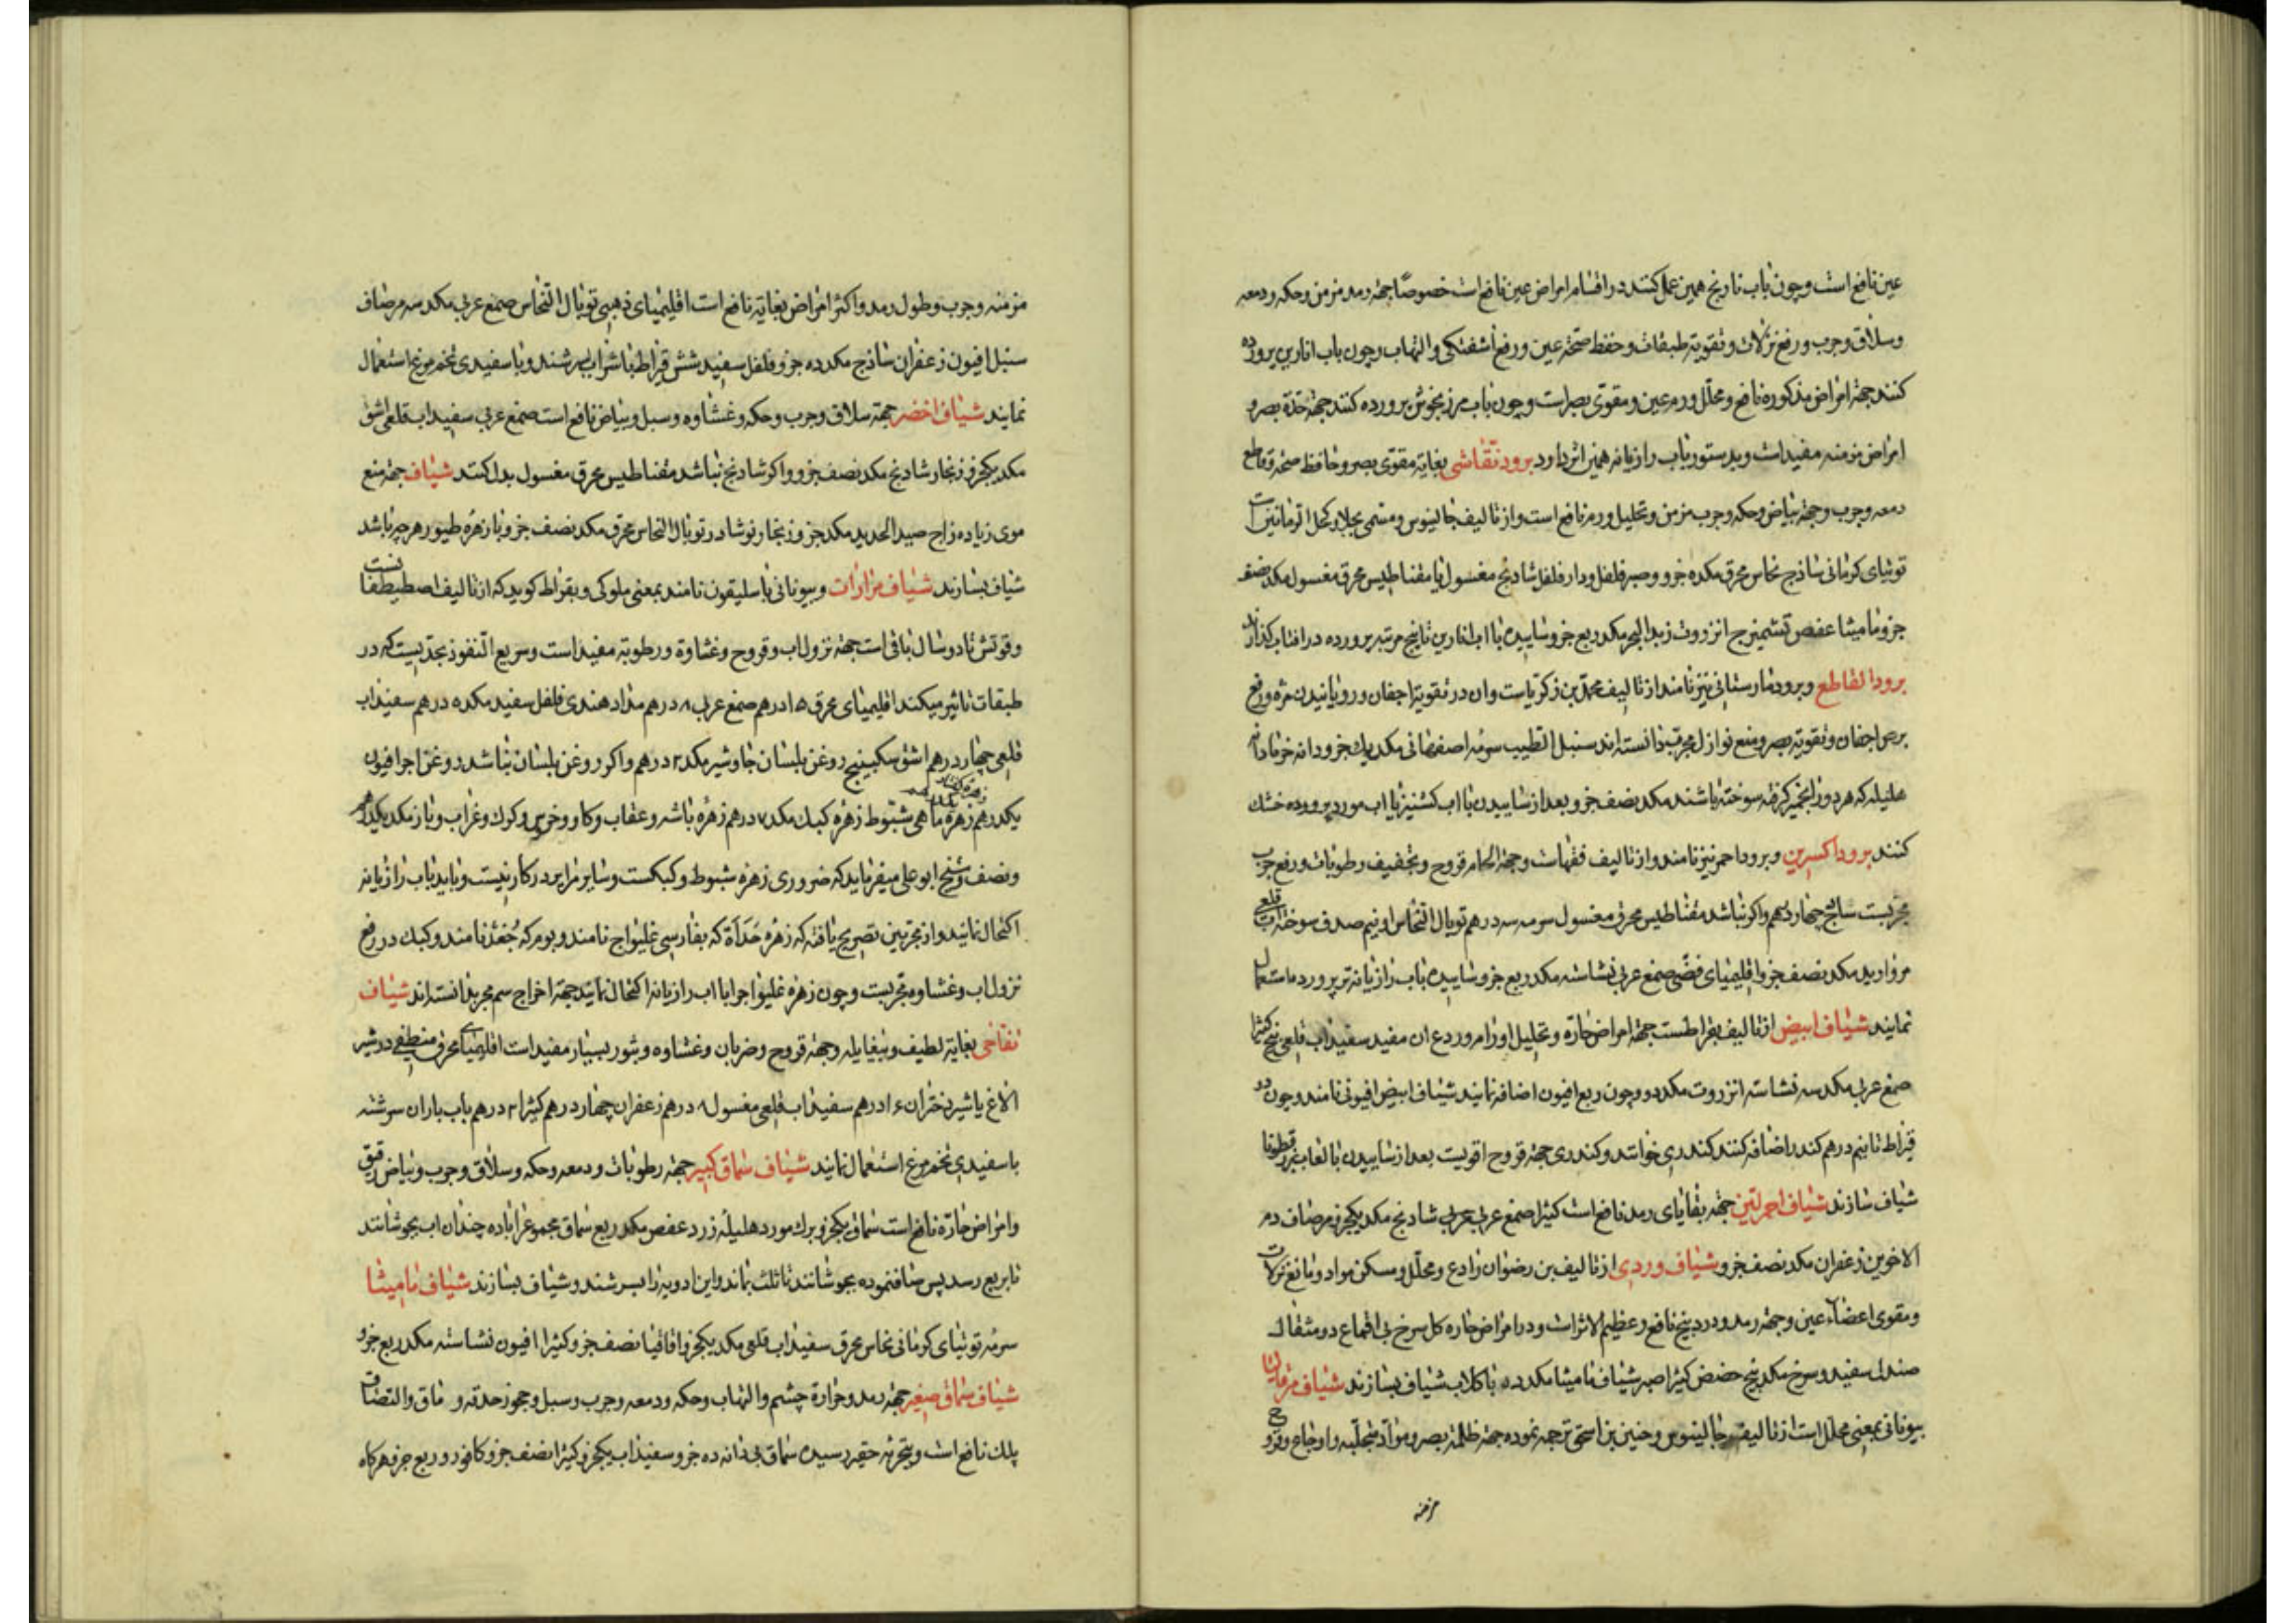 عین نافع است و چون باب نارنج همین عمل کنند در اقسام امراض عین نافع است خصوصاً جهة رمد مزمن و حکه و دمعه
وسلاق و جرب و رفع نزلات و تقویة طبقات و حفظ صحّة عین و رفع آشفتکی و التهاب و چون باب انارین پرورده
کنند جهة امراض مذکوره نافع و محلّل ورم عین و مقوّی بصر است و چون باب مرزنجوش پرورده کنند جهة حدّة بصر و
امراض مزمنه مفید است و بدستور باب رازیانه همین اثر دارد برود نقّاشی بغایة مقوّی بصر و حافظ صحّة و قاطع
دمعه و جرب و جهة بیاض و حکه و جرب مزمن و تحلیل ورم نافع است و از تالیف جالینوس و مسمّی بجلا و کحل الرمانین است
توتیای کرمانی ساذج نحاس محرق مکده جزو و صبر فلفل و دار فلفل شادنج مغسول یا مقناطیس محرق مغسول مکد نصف
جزو مامیشا عفص تشمیزج انزروت زبد البحر مکد ربع جزو ساییده با اب انارین تا پنج مرتبه پرورده در افتاب کذارند
برود القاطع و برود مارستانی نیز نامند از تالیف محمّد بن زکریّاست و ان در تقویة اجفان و رویانیدن مژه و رفع
برص اجفان و تقویة بصر و منع نوازل مجرّب دانسته اند سنبل الطیب سرمه اصفهانی مکد یك جزو دانه خرما دانه
هلیله که هر دو را بخمیر کرفته سوخته باشند مکد نصف جزو بعد از ساییدن با اب کشنیز یا اب مورد پرورده خشك
کنند برود اکسرین و برود احمر نیز نامند و از تالیف فقهاست و جهة الحام قروح و تجفیف رطوبات و رفع جرب
مجرّبست ساذج چهار درهم و اکر نباشد مقناطیس محرق مغسول سرمه سه درهم توبال النّحاس دو نیم صدف سوخته اب قلعی
مروارید مکد نصف جزو اقلیمیای فضّی صمغ عربی نشاسته مکد ربع جزو ساییده باب رازیانه تر پرورده استعمال
نمایند شیاف ابیض از تالیف بقراطست جهة امراض حارّه و تحلیل اورام و ردع ان مفید سفیداب قلعی پنج کثیرا
صمغ عربی مکد سه نشاسته انزروت مکد دو و چون ربع افیون اضافه نمایند شیاف ابیض افیونی نامند و چون دو
قیراط تا نیم درهم کندر اضافه کنند کندری خوانند و کندری جهة قروح اقویست بعد از ساییدن بالعاب بزرقطونا
شیاف سازند شیاف احمر لیّن جهة بقایای رمد نافع است کثیرا صمغ عربی شادنج مکد یکجزو مرصاف دم
الاخوین زعفران مکد نصف جزو شیاف وردی از تالیف بن رضوان رادع و محلّل و مسکن مواد و مانع نزلات
و مقوی اعضاء عین و جهة رمد و درد پنج نافع و عظیم الاثر است و در امراض حاره کل سرخ بی اقماع دو مثقال
صندل سفید و سرخ مکد پنج حضض کثیرا صبر شیاف مامیثا مکد ده با کلاب شیاف بسازند شیاف مرقالیا
بیونانی بمعنی محلّل است از تالیف جالینوس و حنین بن اسحق ترجمه نموده جهة ظلمة بصر و موادّ متجلّبه و اوجاع و قروح
مزمنه
مزمنه و جرب و طول رمد و اکثر امراض بغایة نافع است اقلیمیای ذهبی توبال النّحاس صمغ عربی مکد سه مرصاف
سنبل افیون زعفران شاذنج مکد ده جزو فلفل سفید شش قیراط با شراب بسرشند و با سفیدی تخم مرغ استعمال
نمایند شیاف اخضر جهة سلاق و جرب و حکه و غشاوه و سبل و بیاض نافع است صمغ عربی سفیداب قلعی اشق
مکد یکجزو زنجار شادنج مکد نصف جزو و اکر شادنج نباشد مقناطیس محرق مغسول بدل کنند شیاف جهة منع
موی زیاده زاج صید الحدید مکد جزو زنجار نوشادر توبال النحاس محرق مکد نصف جزو با زهرهٔ طیور هر چه باشد
شیاف بسازند شیاف مرارات و بیونانی باسلیقون نامند بمعنی ملوکی و بقراط کوید که از تالیف اصطیطفانست
و قوتش تا دو سال باقی است جهة نزول اب و قروح و غشاوة و رطوبة مفید است و سریع النّفوذ بحدّیست که در
طبقات تاثیر میکند اقلیمیای محرق ۱۵ درهم صمغ عربی ۸ درهم مداد هندی فلفل سفید مکد ده درهم سفیداب
قلعی چهار درهم اشق سکبینج روغن بلسان جاوشیر مکد ۲ درهم و اکر روغن بلسان نباشد روغن اجر افیون
یکدرهم زهره ماهی شبّوط زهره کبك مکد ۷ درهم زهرهٔ باشه و عقاب و کاو و خرس و کرك و غراب و باز مکد یکدرهم
و نصف و شیخ ابو علی میفرماید که ضروری زهره شبوط و کبکست و سایر مرایر در کار نیست و باید باب رازیانه
اکتحال نمایند و از مجرّبین تصریح یافته که زهره حدأة که بفارسی غلیواج نامند و بوم که جغد نامند و کبك در رفع
نزول اب و غشاوه مجرّبست و چون زهره غلیواج را با اب رازیانه اکتحال نمایند جهة اخراج سم مجرب دانسته اند شیاف
تفاحی بغایة لطیف و بیغایله و جهة قروح و ضربان و غشاوه و بثور بسیار مفید است اقلیمیای محرق منطفی در شیر
الاغ یا شیر دختران ۱۶ درهم سفیداب قلعی مغسول ۸ درهم زعفران چهار درهم کثیرا ۲ درهم باب باران سرشته
با سفیدی تخم مرغ استعمال نمایند شیاف سماق کبیر جهة رطوبات و دمعه و حکه و سلاق و جرب و بیاض رقیق
و امراض حارّه نافع است سماق یکجزو برك مورد هلیلهٔ زرد عفص مکد ربع سماق مجموع را با ده چندان اب بجوشانند
تا بربع رسد پس صاف نموده بجوشانند تا ثلث بماند و این ادویه را بسرشند و شیاف بسازند شیاف مامیشا
سرمه توتیای کرمانی نحاس محرق سفیداب قلعی مکد یکجزو اقاقیا نصف جزو کثیرا افیون نشاسته مکد ربع جزو
شیاف سماق صغیر جهة رمد و حرارة چشم و التهاب و حکه و دمعه و جرب و سبل و جحوز حدقه و ماق و التصاق
پلك نافع است و بتجربهٔ حقیر رسیده سماق بی دانه ده جزو سفیداب یکجزو کثیرا نصف جزو کافور دو ربع جزو هرکاه